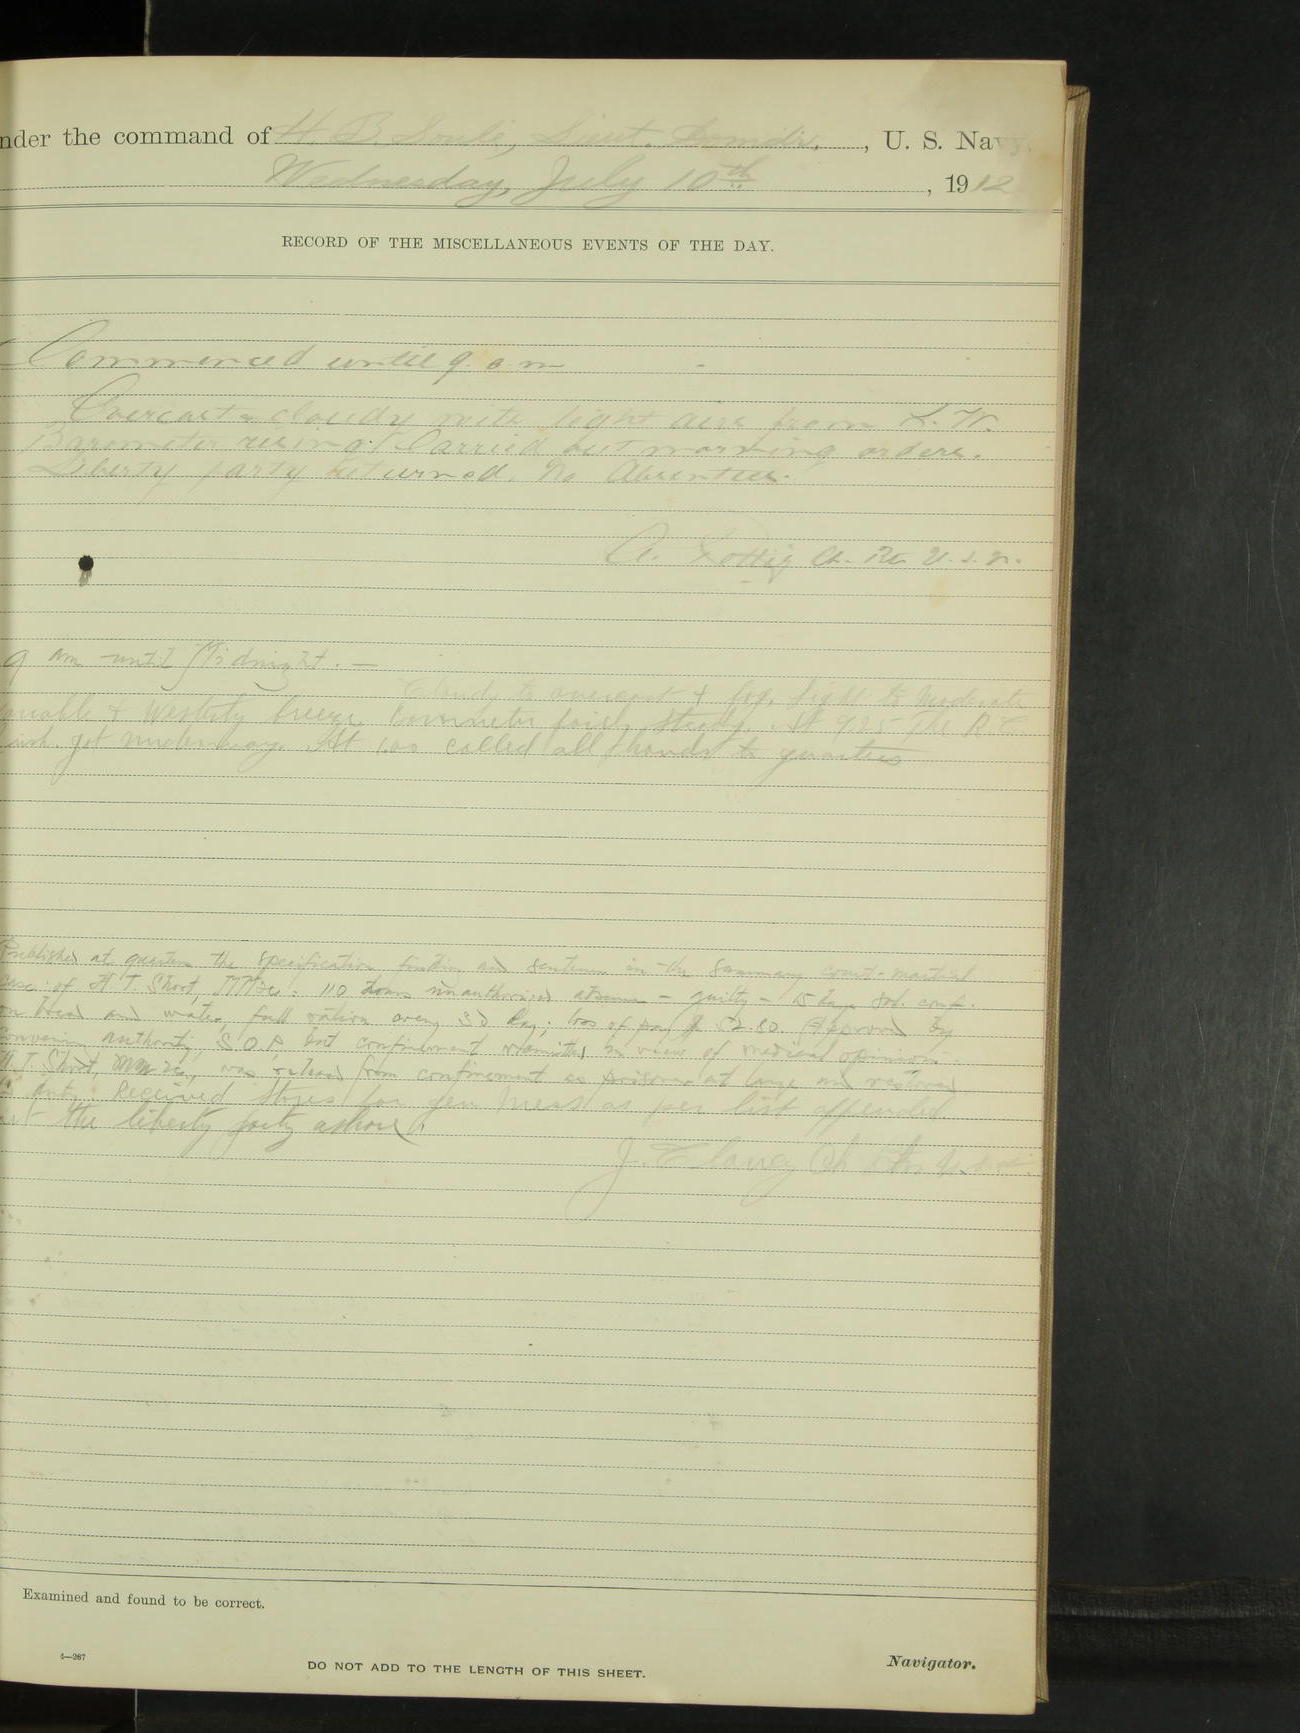 nder the command of H. B. Soule, Lieut. Comdr., U. S. Navy,
Wednesday, July 10th, 1912
RECORD OF THE MISCELLANEOUS EVENTS OF THE DAY.
Commenced until 9. a. m
Overcast & cloudy with light airs from S. W.
Barometer rising. Carried out morning orders.
Liberty party returned, No Absentees.
A. U. S. N.
9 am until Midnight. —
Cloudy to overcast + fog, light to moderate
+ Westerly breeze, barometer fairly steady. At 9.25 the R.C.
got underway. At 1.00 called all hands to quarters
Published at quarters the specification finding and sentence in the summary court-martial
case of H. T. Short, : 110 hours unauthorized absence - guilty - 15 days sol. conf.
on bread and water, full ration every 3d day; loss of pay Approved by
convening authority, S.O.P. but confinement remitted in view of medical opinion.
H. T. Short, was released from confinement as prisoner at large and restored
to duty. Received stores for gen mess as per list appended
the liberty party ashore.
J. Clancy U.S.N.
Examined and found to be correct.
4—267
DO NOT ADD TO THE LENGTH OF THIS SHEET.
Navigator.